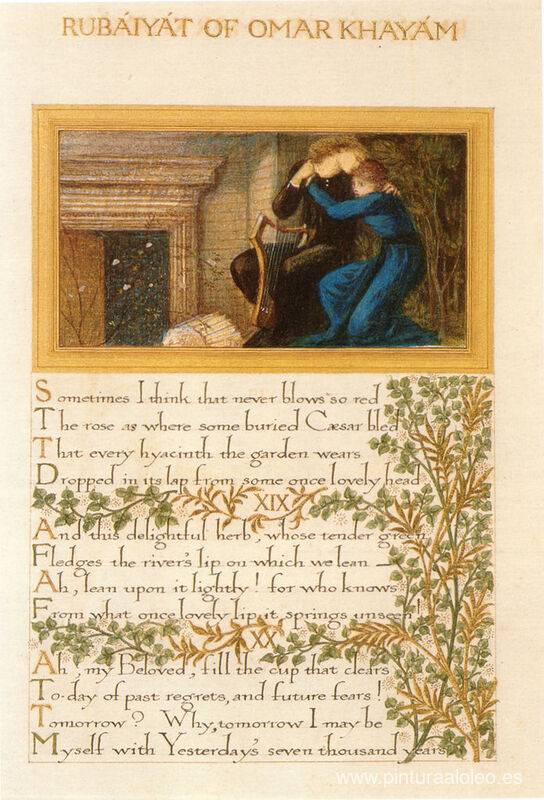 RUBÁIYÁT OF OMAR KHAYÁM
Sometimes I think that never blows so red
The rose as where some buried Cæsar bled
That every hyacinth the garden wears
Dropped in its lap from some once lovely head
XIX
And this delightful herb, whose tender green
Fledges the river's lip on which we lean —
Ah, lean upon it lightly! for who knows
From what once lovely lip it springs unseen!
XX
Ah, my Beloved, fill the cup that clears
To-day of past regrets, and future fears!
Tomorrow? Why, tomorrow I may be
Myself with Yesterday's seven thousand years
www.pinturaaloleo.es